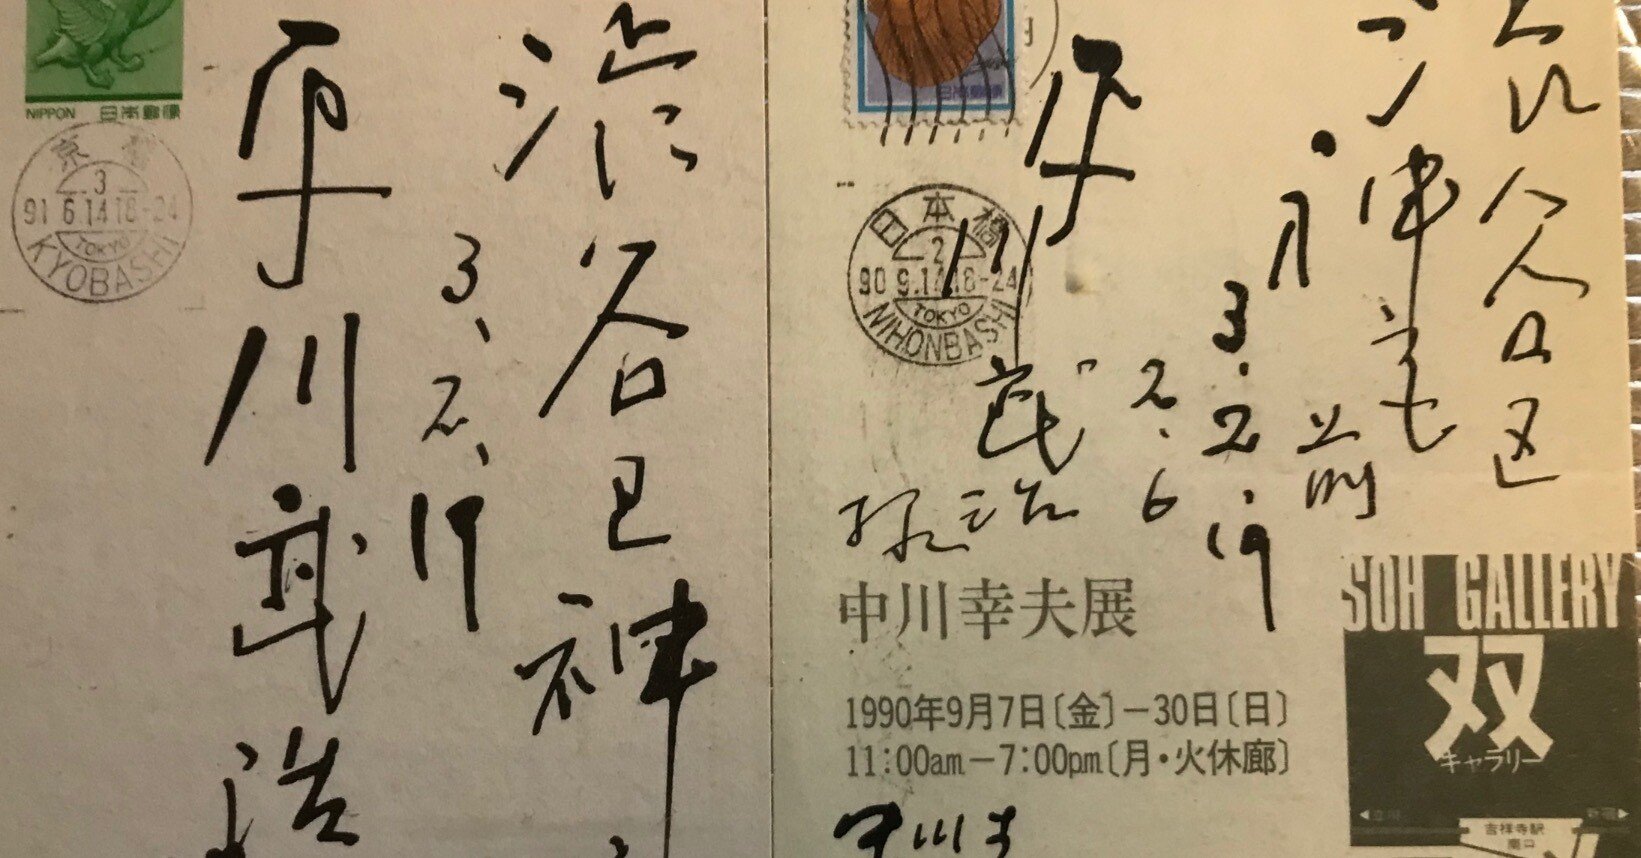 NIPPON 日本郵便
京橋
3
91 6.14 18-24
TOKYO
KYOBASHI
渋谷区神
3、2、19
平川武治
日本郵便
日本橋
2
18-24
TOKYO
NIHONBASHI
渋谷区
神宮前
3.2.19
2.6
平川武治
様
中川幸夫展
1990年9月7日〔金〕−30日〔日〕
11:00am−7:00pm〔月・火休廊〕
中川
SOH GALLERY
双
ギャラリー
吉祥寺駅
南口